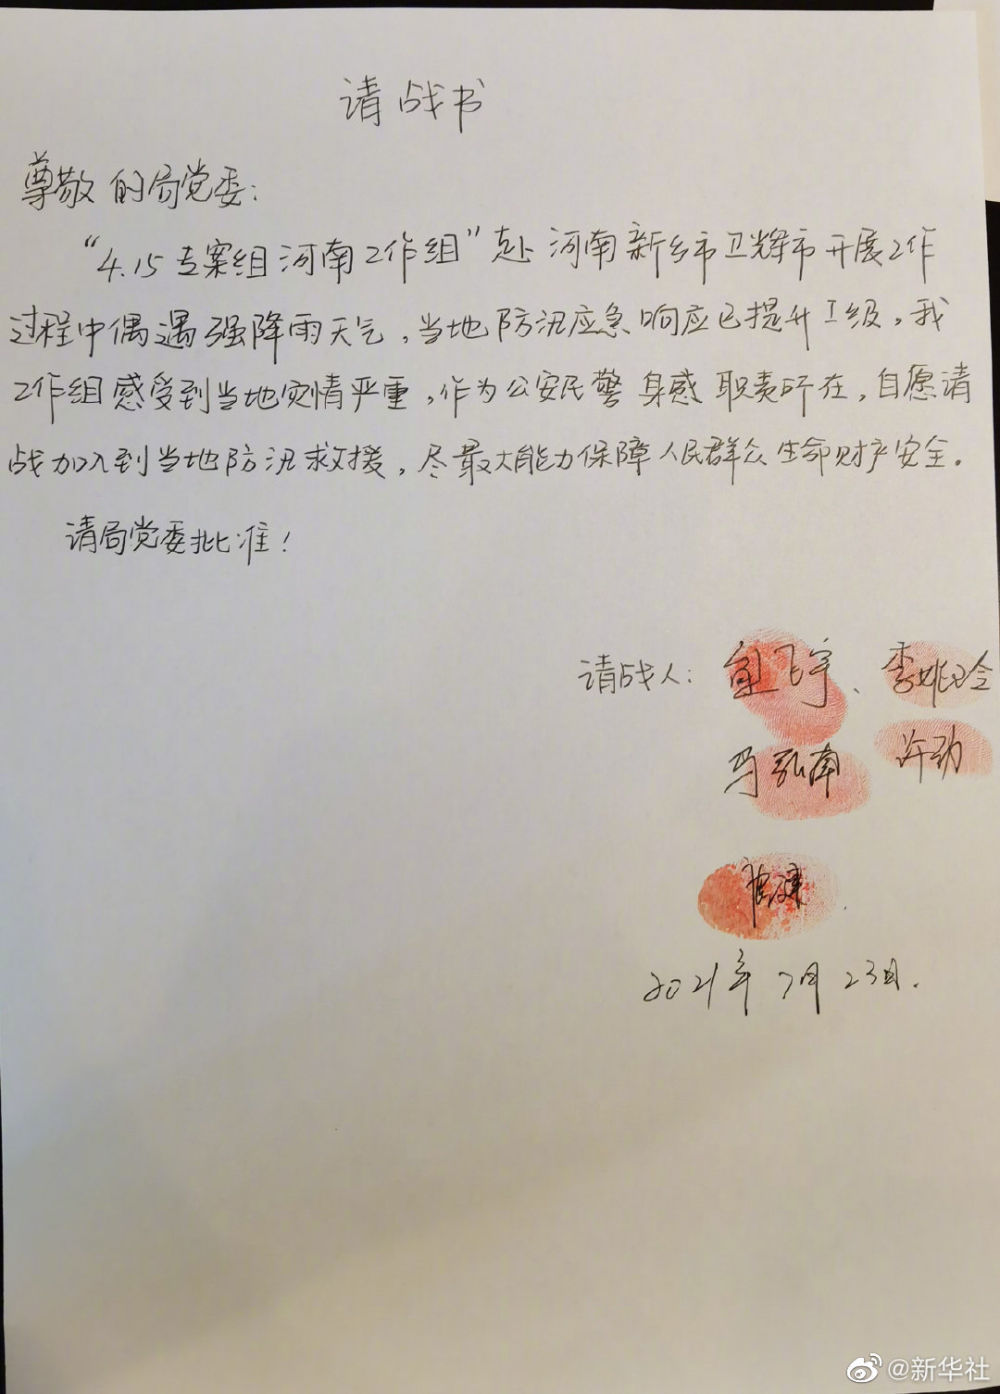 请战书
尊敬的局党委：
“4.15专案组河南工作组”赴河南新乡市卫辉市开展工作
过程中偶遇强降雨天气，当地防汛应急响应已提升I级，我
工作组感受到当地灾情严重，作为公安民警身感职责所在，自愿请
战加入到当地防汛救援，尽最大能力保障人民群众生命财产安全。
请局党委批准！
请战人：飞宇、李姚玲
马弘南 许劲
2021年7月23日.
@新华社